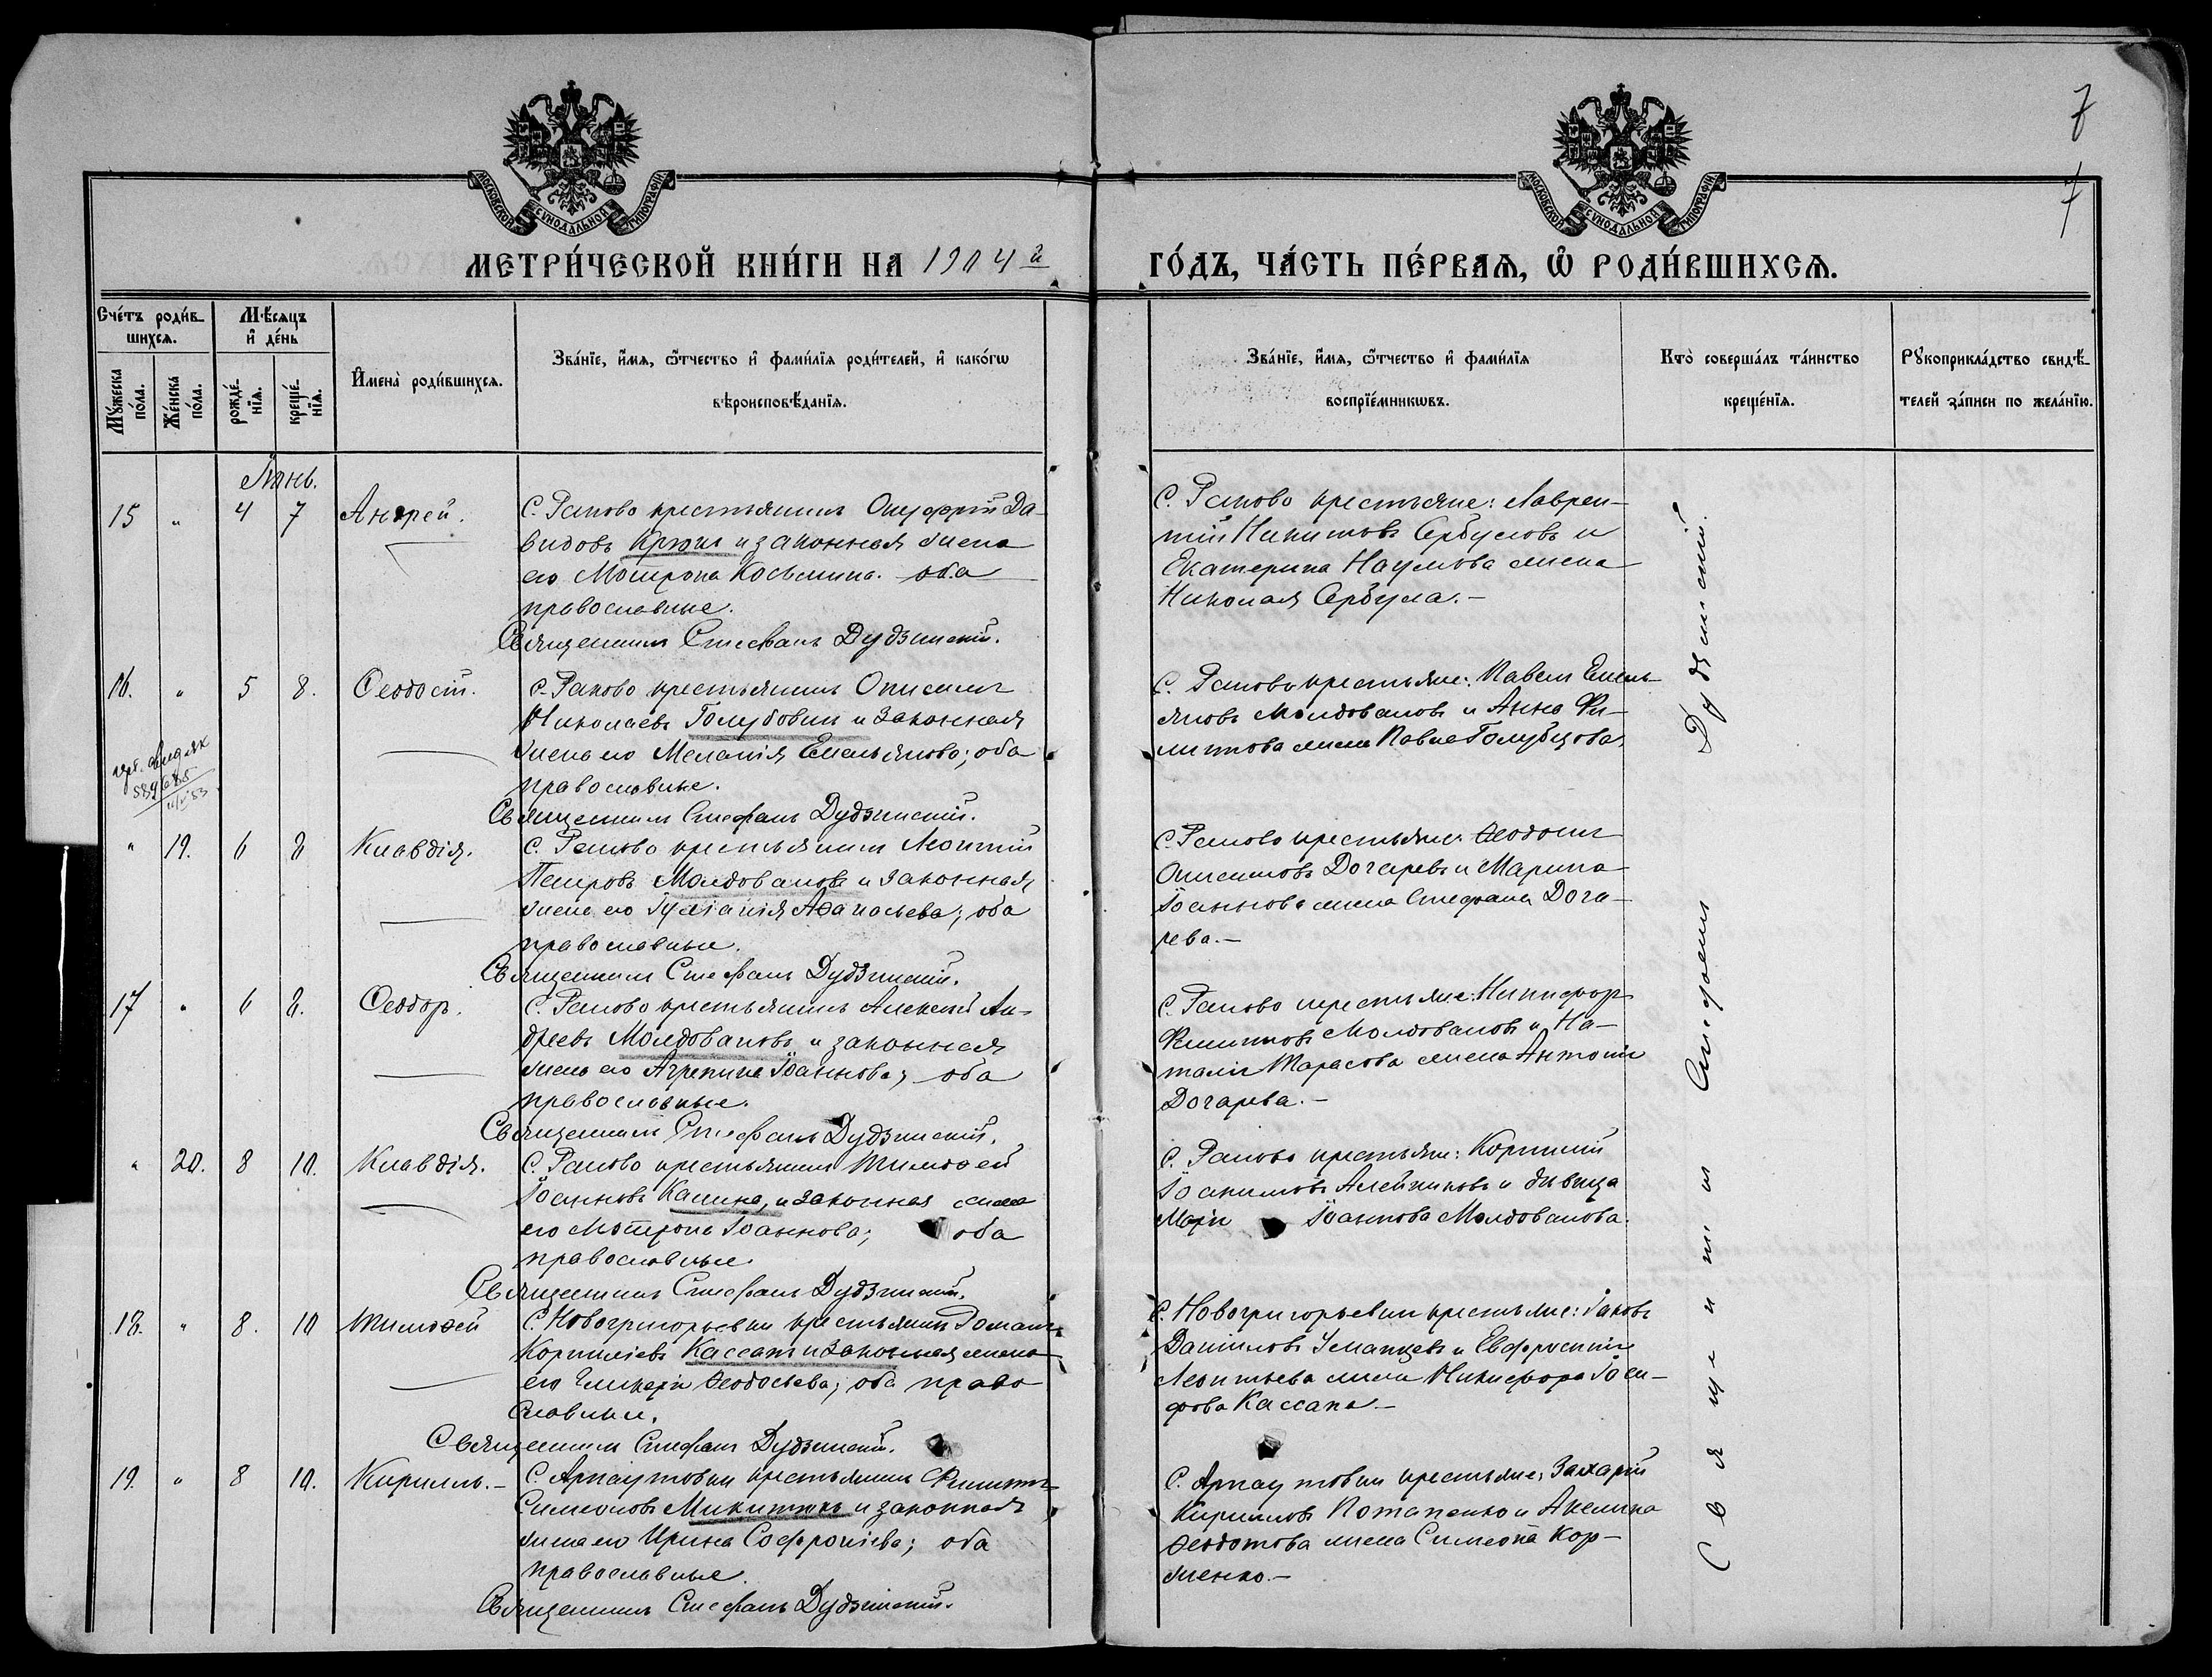 7
7
МОСКОВСКОЙ СѴНОДАЛЬНОЙ ТИПОГРАФІИ
МОСКОВСКОЙ СѴНОДАЛЬНОЙ ТИПОГРАФІИ
МЕТРИ́ЧЕСКОЙ КНИ́ГИ НА 1904й
ГО́ДЪ, ЧА́СТЬ ПЕ́РВАѦ, Ѽ РОДИ́ВШИХСѦ.
Сче́тъ роди́в-
шихсѧ.
Мѣ́сѧцъ
и҆ де́нь
Мꙋ́жеска по́ла.
Же́нска по́ла.
рожде́нїѧ.
креще́нїѧ.
И҆мена̀ роди́вшихсѧ.
Зва́нїе, и҆́мѧ, ѻ҆́тчество и҆ фами́лїѧ роди́телей, и҆ како́гѡ
вѣроисповѣ́данїѧ.
Зва́нїе, и҆́мѧ, ѻ҆́тчество и҆ фами́лїѧ
воспрїе́мникѡвъ.
Кто̀ соверша́лъ та́инство
креще́нїѧ.
Рꙋкоприкла́дство свидѣ́-
телей за́писи по жела́нїю.
Іюнь.
15 " 4 7 Андрей. С. Раково крестьянинъ Онуфрій Да-
видовъ и законная жена
его Мотрона Косьмина. оба
православные.
Священникъ Стефанъ Дудзинскій.
С. Раково крестьяне: Лаврен-
тій Никитовъ Сербуловъ и
Екатерина Наумова жена
Николая Сербула.-
16. " 5 8. Ѳеодосій. С. Раково крестьянинъ Онисимъ
Николаевъ Голубовик и законная
жена его Меланія Емельянова; оба
православные.
Священникъ Стефанъ Дудзинскій.
С. Раково крестьяне: Павелъ Емель-
яновъ Молдовановъ и Анна Фи-
липпова жена Павла Голубцова.
589685
" 19. 6 8 Клавдія. С. Раково крестьянинъ Леонтій
Петровъ Молдовановъ и законная
жена его Іуліанія Аѳанасьева; оба
православные.
Священникъ Стефанъ Дудзинскій.
С. Раково крестьяне: Ѳеодосій
Онисимовъ Догаревъ и Марина
Іоаннова жена Стефана Дога-
рева.-
17 " 6 8. Ѳеодоръ. С. Раково крестьянинъ Алексій Ан-
дреевъ Молдовановъ и законная
жена его Агрепина Іоаннова; оба
православные.
Священникъ Стефанъ Дудзинскій.
С. Раково крестьяне: Никифоръ
Филипповъ Молдовановъ и На-
талія Тарасова жена Антонія
Догарева.-
" 20. 8 10. Клавдія. С. Раково крестьянинъ Тимоѳей
Іоанновъ Калина, и законная жена
его Мотрона Іоаннова; оба
православные.
Священникъ Стефанъ Дудзинскій.
С. Раково крестьяне: Корнилій
Іоакимовъ Алейниковъ и дѣвица
Марія Іоаннова Молдованова.
18. " 8. 10 Тимоѳей С. Новогригорьевки крестьянинъ Романъ
Корниліевъ Кассап и законная жена
его Гликерія Ѳеодосьева; оба право
славные.
Священникъ Стефанъ Дудзинскій.
С. Новогригорьевки крестьяне: Іаковъ
Даніиловъ Уманцевъ и Евфросинія
Леонтьева жена Никифора Іоси-
фова Кассапа.-
19. " 8 10. Кириллъ.- С. Арнаутовки крестьянинъ Филиппъ
Симеоновъ Микитюкъ и законная
жена его Ирина Софроніева; оба
православные.
Священникъ Стефанъ Дудзинскій.
С. Арнаутовки крестьяне: Захарій
Кирилловъ Потапенко и Акелина
Ѳеодотова жена Симеона Кор-
женко.-
Священникъ Стефанъ Дудзинскій.